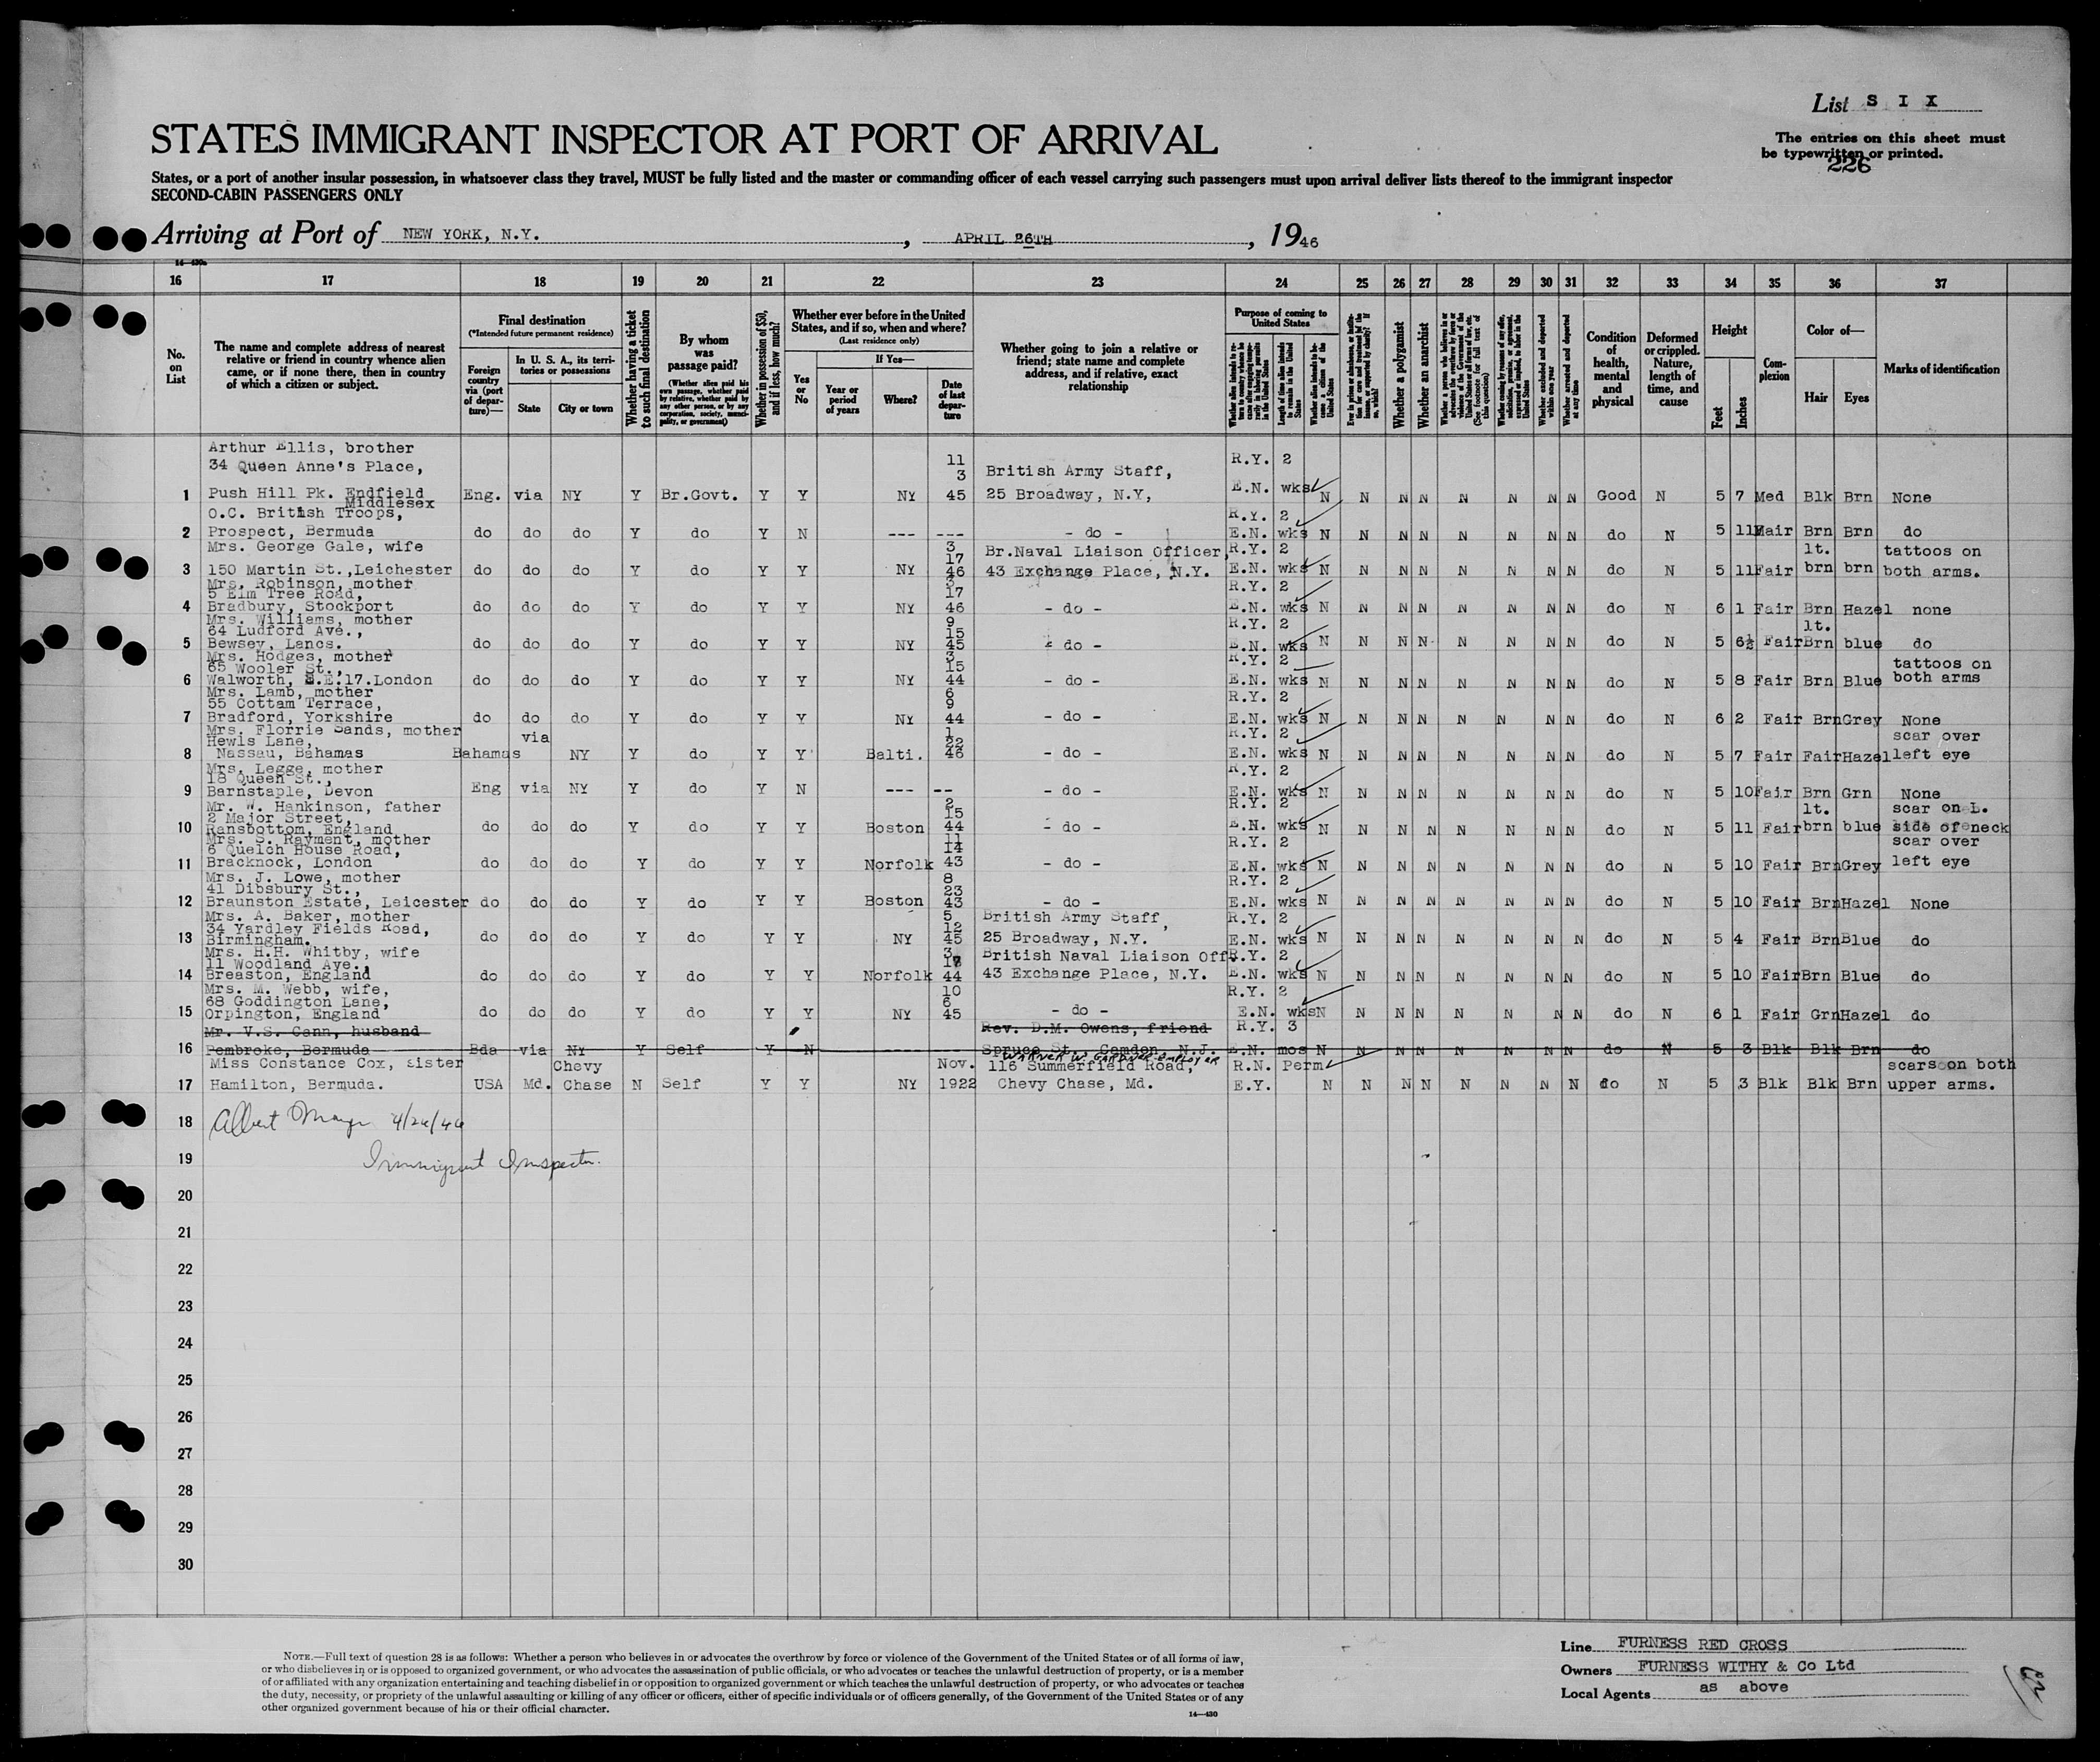 List S I X
STATES IMMIGRANT INSPECTOR AT PORT OF ARRIVAL
The entries on this sheet must
be typewritten or printed.
226
States, or a port of another insular possession, in whatsoever class they travel, MUST be fully listed and the master or commanding officer of each vessel carrying such passengers must upon arrival deliver lists thereof to the immigrant inspector
SECOND-CABIN PASSENGERS ONLY
Arriving at Port of NEW YORK, N.Y. , APRIL 26TH , 1946
16 17 18 19 20 21 22 23 24 25 26 27 28 29 30 31 32 33 34 35 36 37
No. on List
The name and complete address of nearest relative or friend in country whence alien came, or if none there, then in country of which a citizen or subject.
Final destination
(*Intended future permanent residence)
Foreign country via (port of departure)—
In U. S. A., its territories or possessions
State
City or town
Whether having a ticket to such final destination
By whom was passage paid?
(Whether alien paid his own passage, whether paid by relative, whether paid by any other person, or by any corporation, society, municipality, or government)
Whether in possession of $50, and if less, how much?
Whether ever before in the United States, and if so, when and where?
(Last residence only)
Yes or No
If Yes—
Year or period of years
Where?
Date of last departure
Whether going to join a relative or friend; state name and complete address, and if relative, exact relationship
Purpose of coming to United States
Length of time alien intends to remain in the United States
Whether alien intends to become a citizen of the United States
Whether a polygamist
Whether an anarchist
Whether excluded and deported within one year
Whether arrested and deported at any time
Condition of health, mental and physical
Deformed or crippled. Nature, length of time, and cause
Height
Feet
Inches
Complexion
Color of—
Hair
Eyes
Marks of identification
Arthur Ellis, brother
34 Queen Anne's Place, 11 3 British Army Staff, R.Y. 2
1 Push Hill Pk. Endfield Middlesex Eng. via NY Y Br.Govt. Y Y NY 45 25 Broadway, N.Y, E.N. wks N N N N N N N N Good N 5 7 Med Blk Brn None
O.C. British Troops, R.Y. 2
2 Prospect, Bermuda do do do Y do Y N --- --- - do - E.N. wks N N N N N N N N do N 5 11 Brn Brn do
Mrs. George Gale, wife 3 17 Br.Naval Liaison Officer, R.Y. 2 lt. tattoos on
3 150 Martin St.,Leichester do do do Y do Y Y NY 46 43 Exchange Place, N.Y. E.N. wks N N N N N N N N do N 5 11 Fair brn brn both arms.
Mrs. Robinson, mother
5 Elm Tree Road, 3 17 R.Y. 2
4 Bradbury, Stockport do do do Y do Y Y NY 46 - do - E.N. wks N N N N N N N N do N 6 1 Fair Brn Hazel none
Mrs. Williams, mother
64 Ludford Ave., 9 15 R.Y. 2 lt.
5 Bewsey, Lancs. do do do Y do Y Y NY 45 - do - E.N. wks N N N N N N N N do N 5 6½ Fair Brn blue do
Mrs. Hodges, mother
65 Wooler St., 3 15 R.Y. 2 tattoos on
6 Walworth, S.E.17.London do do do Y do Y Y NY 44 - do - E.N. wks N N N N N N N N do N 5 8 Fair Brn Blue both arms
Mrs. Lamb, mother
55 Cottam Terrace, 6 9 R.Y. 2
7 Bradford, Yorkshire do do do Y do Y Y NY 44 - do - E.N. wks N N N N N N N N do N 6 2 Fair Brn Grey None
Mrs. Florrie Sands, mother
Hewls Lane, via 1 22 R.Y. 2 scar over
8 Nassau, Bahamas Bahamas NY Y do Y Y Balti. 46 - do - E.N. wks N N N N N N N N do N 5 7 Fair Fair Hazel left eye
Mrs. Legge, mother
18 Queen St., R.Y. 2
9 Barnstaple, Devon Eng via NY Y do Y N --- -- - do - E.N. wks N N N N N N N N do N 5 10 Fair Brn Grn None
Mr. W. Hankinson, father
2 Major Street, 2 15 R.Y. 2 lt. scar on L.
10 Ransbottom, England do do do Y do Y Y Boston 44 - do - E.N. wks N N N N N N N N do N 5 11 Fair brn blue side of neck
Mrs. S. Rayment, mother
6 Quelch House Road, 11 14 R.Y. 2 scar over
11 Bracknock, London do do do Y do Y Y Norfolk 43 - do - E.N. wks N N N N N N N N do N 5 10 Fair Brn Grey left eye
Mrs. J. Lowe, mother
41 Dibsbury St., 8 23 R.Y. 2
12 Braunston Estate, Leicester do do do Y do Y Y Boston 43 - do - E.N. wks N N N N N N N N do N 5 10 Fair Brn Hazel None
Mrs. A. Baker, mother
34 Yardley Fields Road, 5 12 British Army Staff, R.Y. 2
13 Birmingham. do do do Y do Y Y NY 45 25 Broadway, N.Y. E.N. wks N N N N N N N N do N 5 4 Fair Brn Blue do
Mrs. H.H. Whitby, wife
11 Woodland Aye., 3 British Naval Liaison Off. R.Y. 2
14 Breaston, England do do do Y do Y Y Norfolk 44 43 Exchange Place, N.Y. E.N. wks N N N N N N N N do N 5 10 Fair Brn Blue do
Mrs. M. Webb, wife,
68 Goddington Lane, 10 6 R.Y. 2
15 Orpington, England do do do Y do Y Y NY 45 - do - E.N. wks N N N N N N N N do N 6 1 Fair Grn Hazel do
Mr. V.S. Cann, husband Rev. D.M. Owens, friend R.Y. 3
16 Pembroke, Bermuda Bda via NY Y Self Y N ---- Spruce St., Camden, N.J. E.N. mos N N N N N N N N do N 5 3 Blk Blk Brn do
WARNER W. GARDNER-EMPLOYER
Miss Constance Cox, sister Chevy Nov. 116 Summerfield Road, R.N. Perm scars on both
17 Hamilton, Bermuda. USA Md. Chase N Self Y Y NY 1922 Chevy Chase, Md. E.Y. N N N N N N N N do N 5 3 Blk Blk Brn upper arms.
18 Albert 4/26/46
19 Immigrant Inspector.
20
21
22
23
24
25
26
27
28
29
30
NOTE.—Full text of question 28 is as follows: Whether a person who believes in or advocates the overthrow by force or violence of the Government of the United States or of all forms of law,
or who disbelieves in or is opposed to organized government, or who advocates the assassination of public officials, or who advocates or teaches the unlawful destruction of property, or is a member
of or affiliated with any organization entertaining and teaching disbelief in or opposition to organized government or which teaches the unlawful destruction of property, or who advocates or teaches
the duty, necessity, or propriety of the unlawful assaulting or killing of any officer or officers, either of specific individuals or of officers generally, of the Government of the United States or of any
other organized government because of his or their official character.
14—430
Line FURNESS RED CROSS
Owners FURNESS WITHY & Co Ltd
Local Agents as above